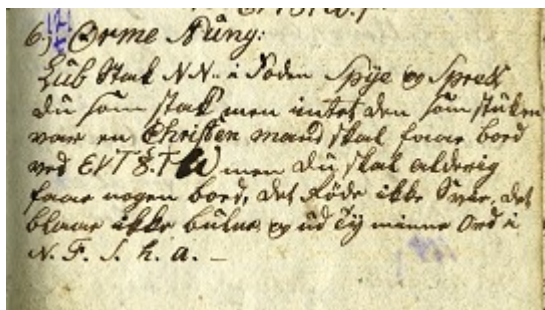 6) Orme Stüng:
Lub Stak NN. i Foden Spÿe og Spredt
du som stak men intet den som stüken
var en Christen mand skal faae bord
ved men du skal alderig
faae nogen bord, det Röde ikke Svær, det
blaae ikke bülne og üd Tÿ minne Ord i
N. F. S. h. a. –